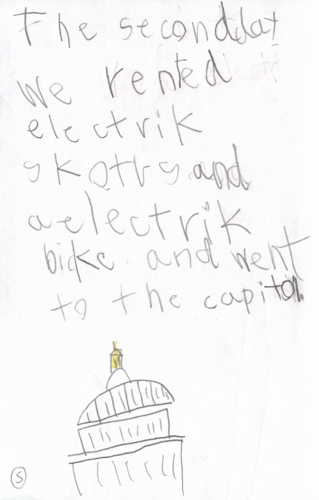 The seconddat
we rented
electrik
skottrs and
a electrik
bicke and went
to the capitol.
5